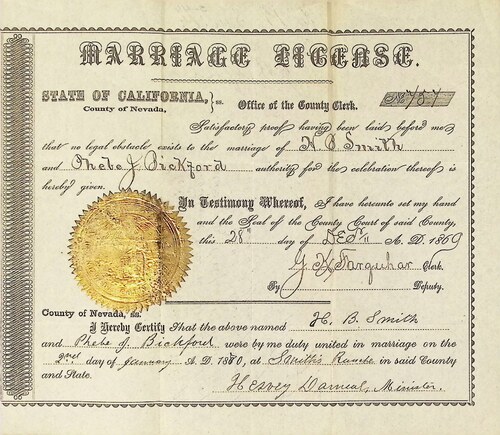 MARRIAGE LICENSE.
STATE OF CALIFORNIA, } ss. Office of the County Clerk. No. 787
County of Nevada,
Satisfactory proof having been laid before me
that no legal obstacle exists to the marriage of H B Smith
and Phebe J Bickford authority for the celebration thereof is
hereby given.
In Testimony Whereof, I have hereunto set my hand
and the Seal of the County Court of said County,
this 28th day of DEC A. D. 1869
Farquhar Clerk.
By Deputy.
County of Nevada, ss.
I Hereby Certify That the above named H. B. Smith
and Phebe J. Bickford were by me duly united in marriage on the
2nd day of January A. D. 1870, at Smith's Ranche in said County
and State.
Minister.